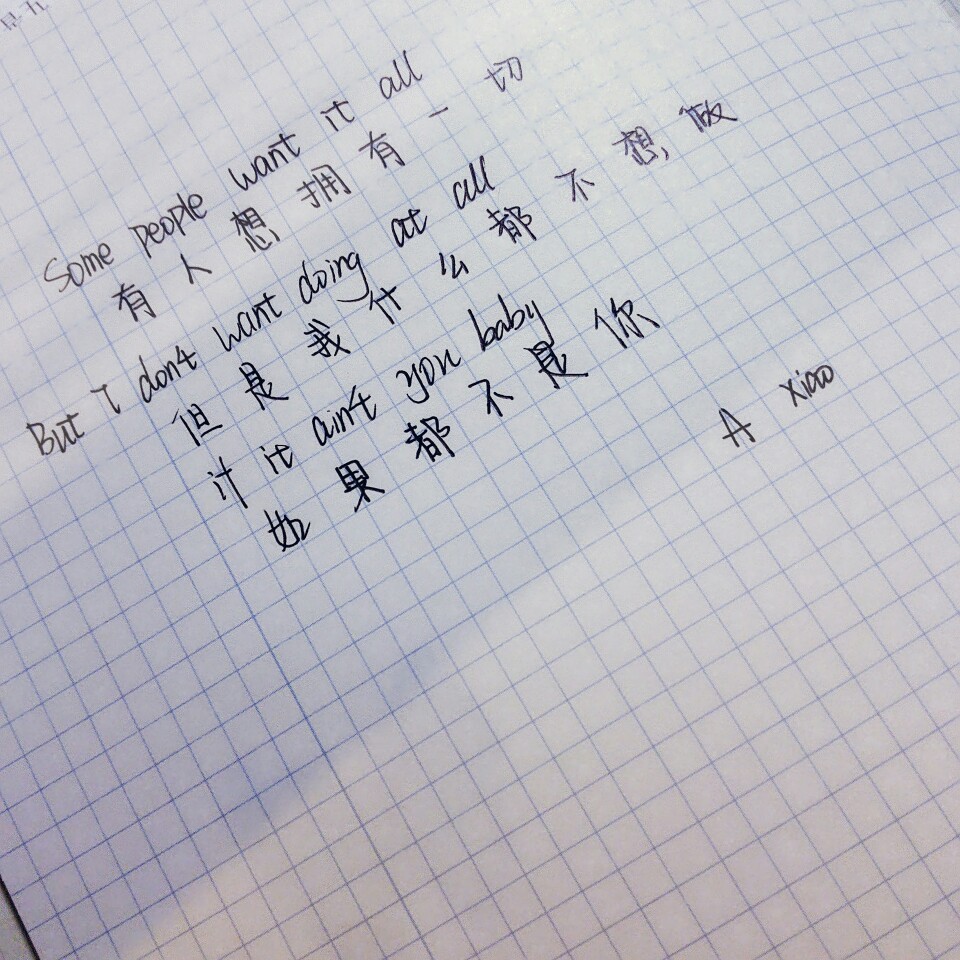 Some people want it all
有人想拥有一切
But I don't want doing at all
但是我什么都不想做
if it ain't you baby
如果都不是你
A xiao